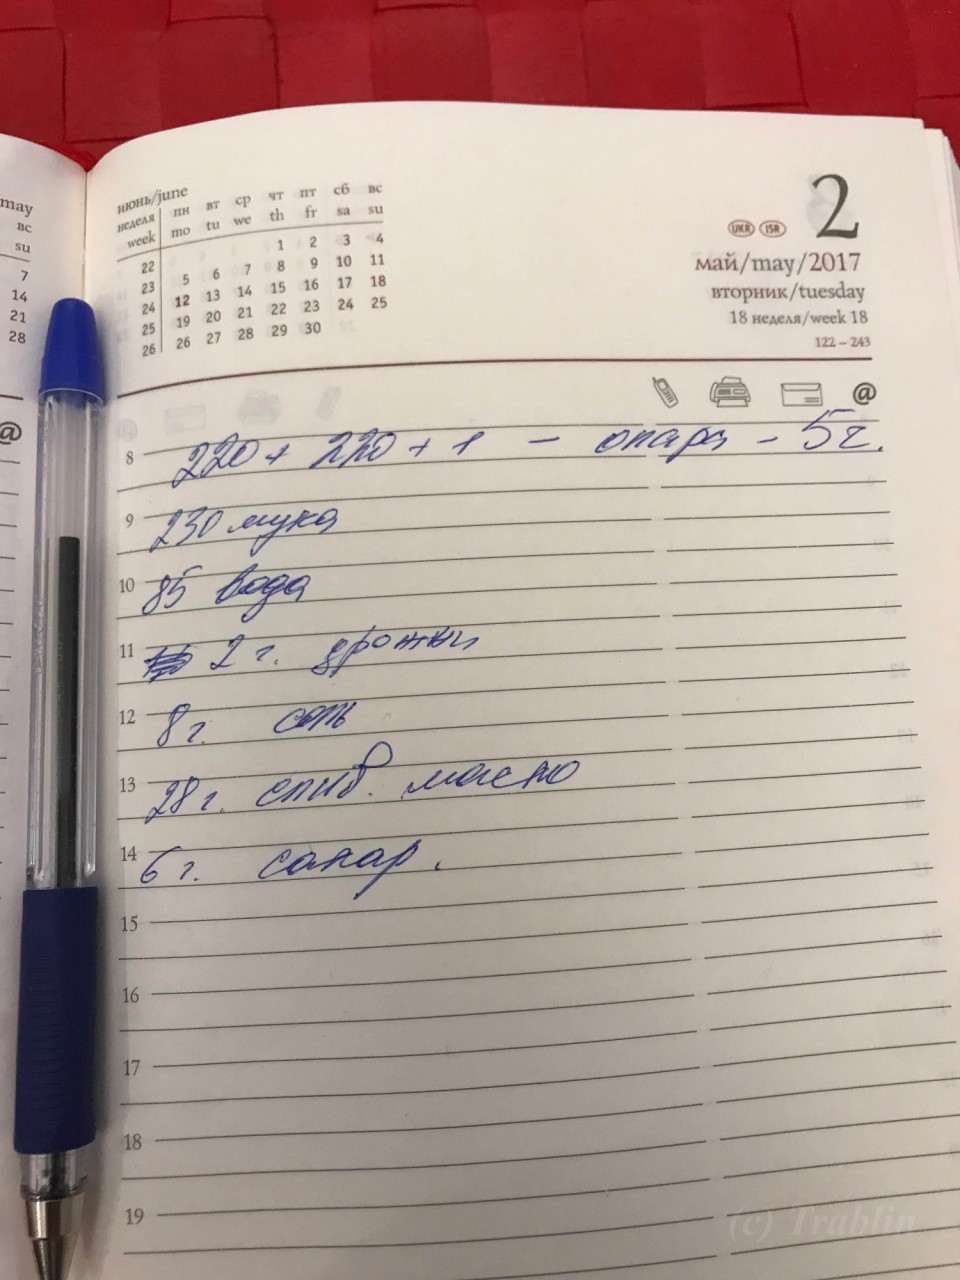 may
вс
su
7
14
21
28
@
июнь/june
неделя пн вт ср чт пт сб вс
week mo tu we th fr sa su
22 1 2 3 4
23 5 6 7 8 9 10 11
24 12 13 14 15 16 17 18
25 19 20 21 22 23 24 25
26 26 27 28 29 30
2
UKR ISR
май/may/2017
вторник/tuesday
18 неделя/week 18
122 – 243
@
8 220 + 220 + 1 – опара – 5 г.
9 230 мука
10 85 вода
11 2 г. дрожжи
12 8 г. соль
13 28 г. слив. масло
14 6 г. сахар.
15
16
17
18
19
(c) Trablin